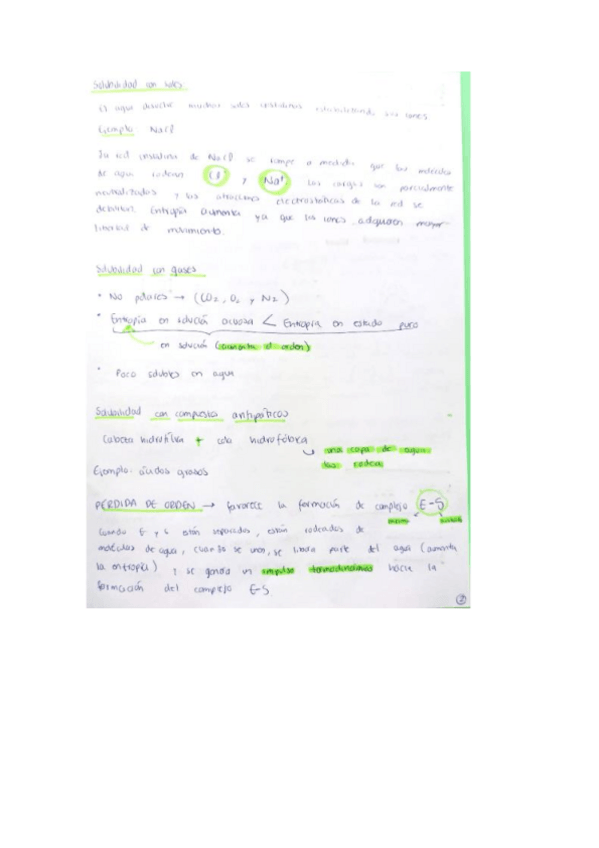 Solubilidad con sales
El agua disuelve muchas sales cristalinas estabilizando sus iones
Ejemplo NaCl
La red cristalina de NaCl se rompe a medida que las moléculas
de agua rodean Cl⁻ y Na⁺. Las cargas son parcialmente
neutralizadas y las atracciones electrostáticas de la red se
debilitan. Entropía aumenta ya que los iones adquieren mayor
libertad de movimiento.
Solubilidad con gases
• No polares → (CO2, O2 y N2)
• Entropía en solución acuosa < Entropía en estado puro
en solución (aumenta el orden)
• Poco solubles en agua
Solubilidad con compuestos antipáticos
Cabeza hidrofílica + cola hidrofóbica
una capa de agua
las rodea
Ejemplo: ácidos grasos
PÉRDIDA DE ORDEN → favorece la formación de complejo E-S
Cuando E y S están separados, están rodeados de
moléculas de agua, cuando se unen, se libera parte del agua (aumenta
la entropía) y se genera un impulso termodinámico hacia la
formación del complejo E-S
2